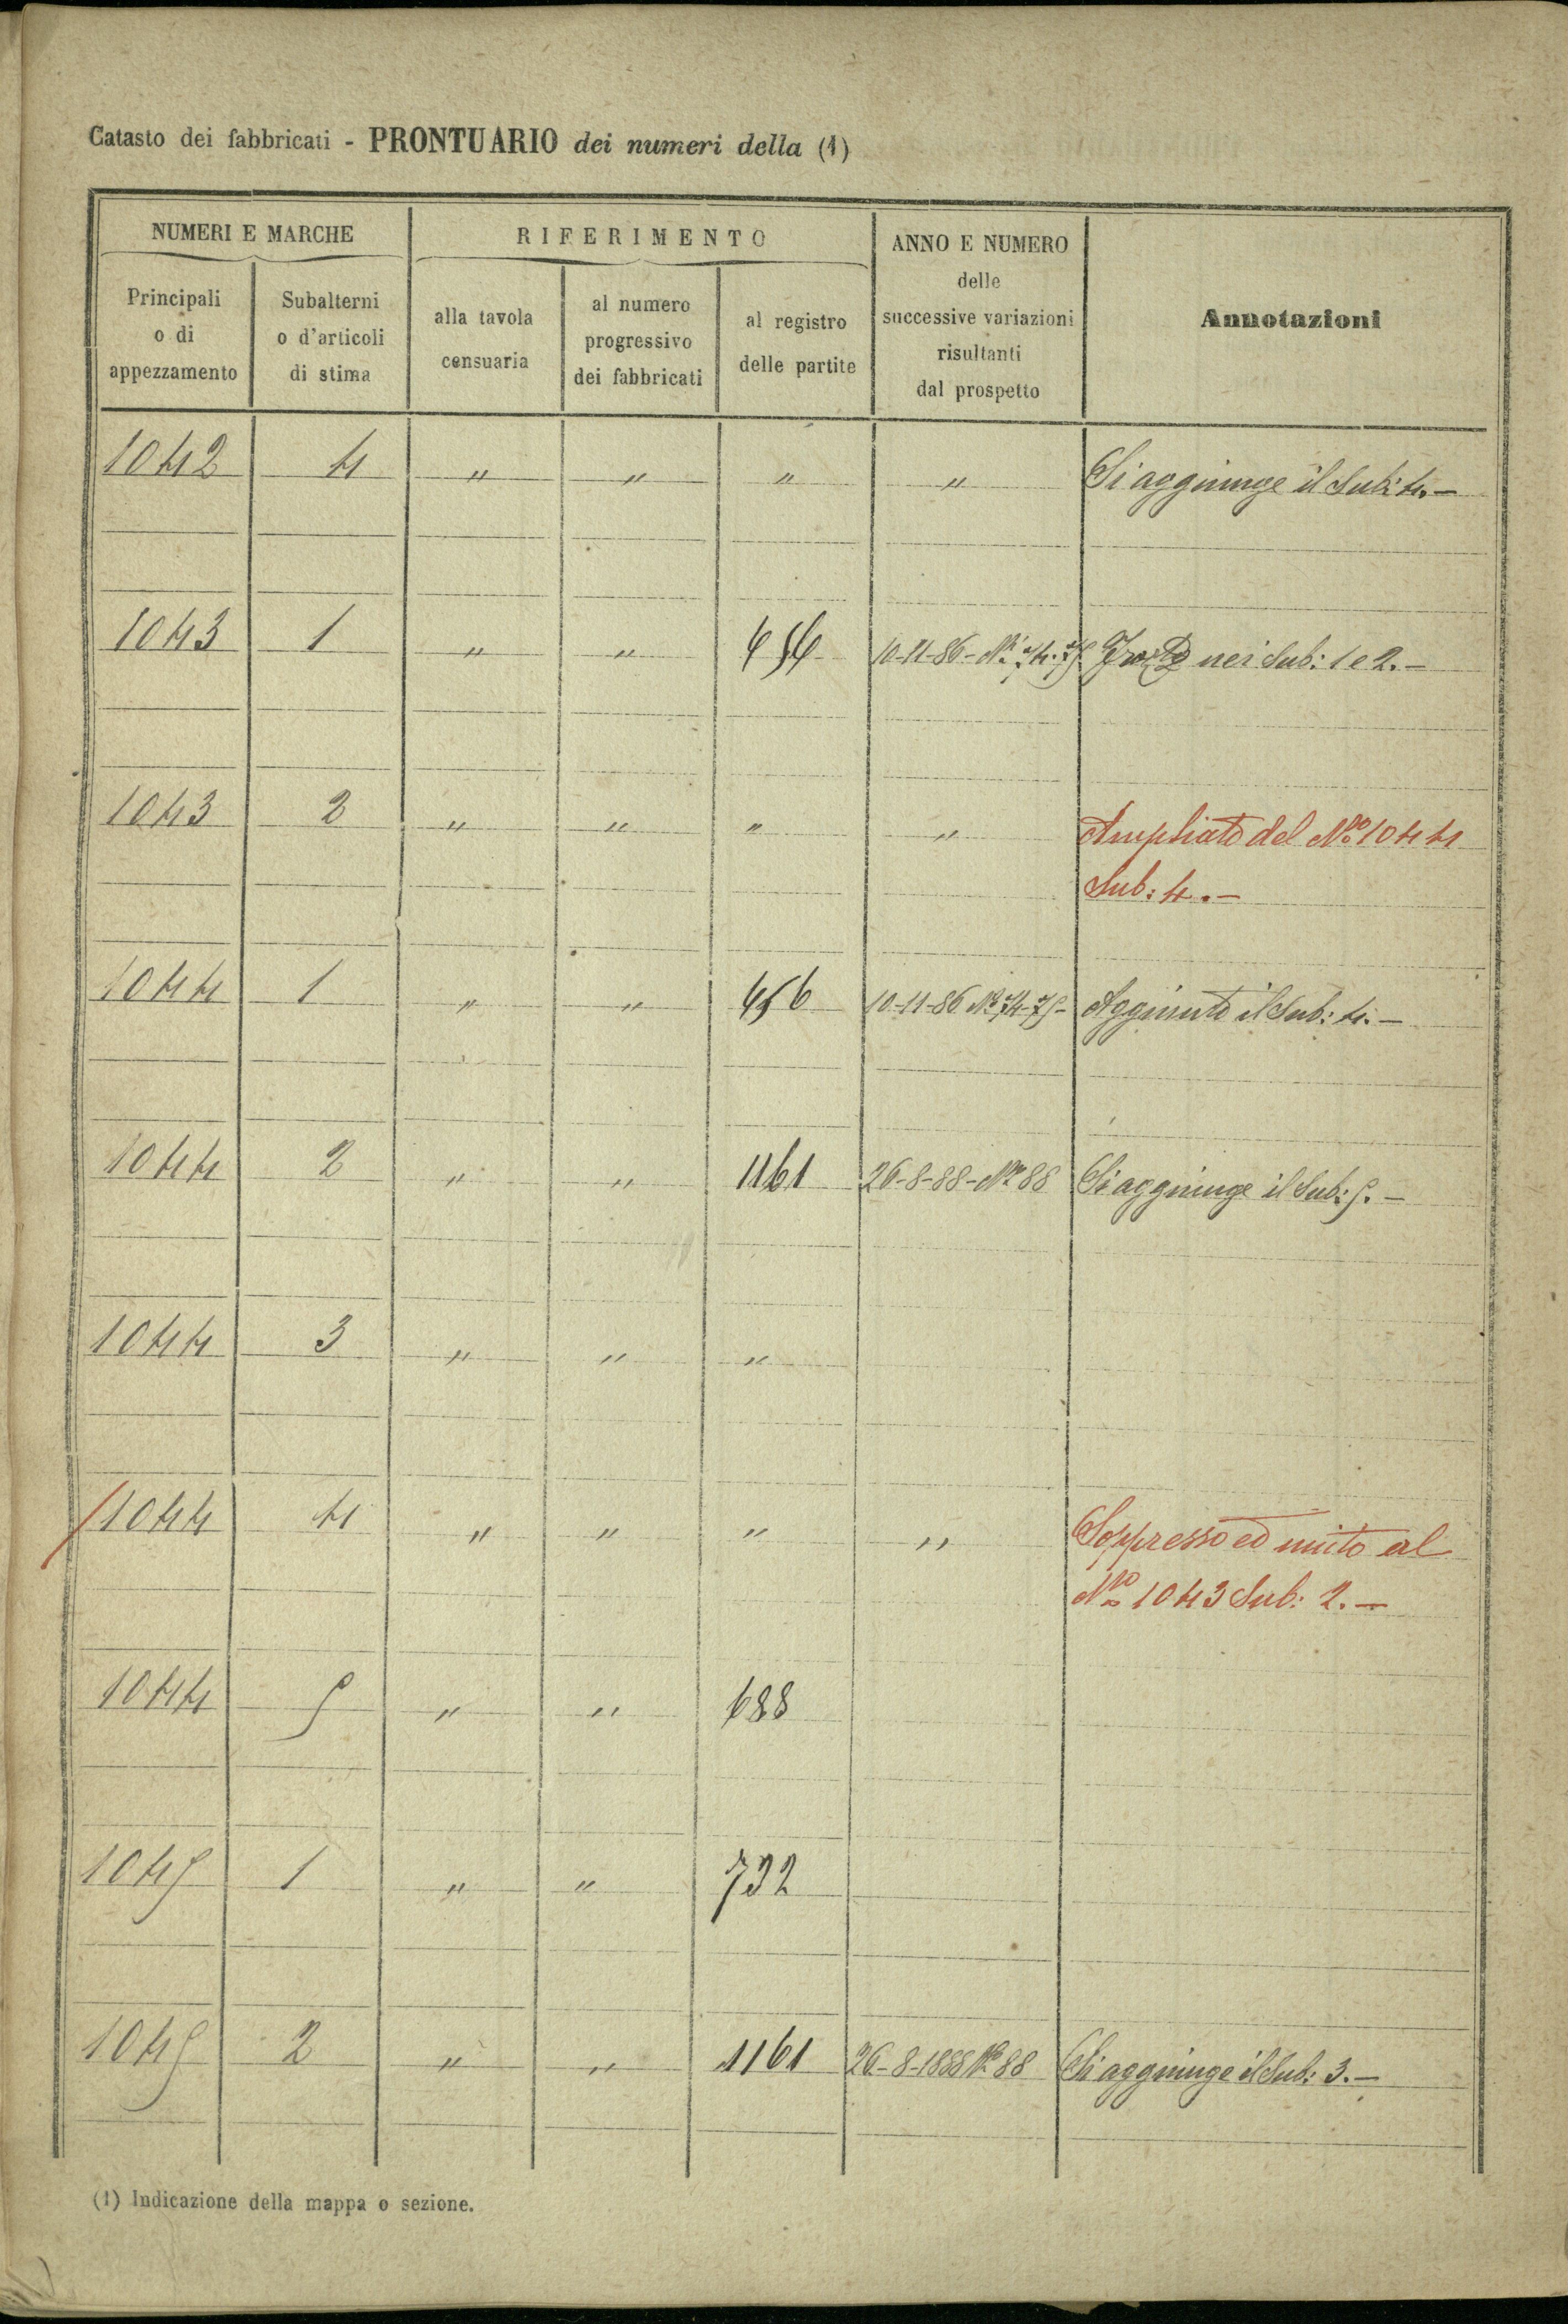 Catasto dei fabbricati - PRONTUARIO dei numeri della (1)
NUMERI E MARCHE
RIFERIMENTO
ANNO E NUMERO
delle
successive variazioni
risultanti
dal prospetto
Annotazioni
Principali
o di
appezzamento
Subalterni
o d'articoli
di stima
alla tavola
censuaria
al numero
progressivo
dei fabbricati
al registro
delle partite
1042 4 " " " " Si aggiunge il Sub: 4.—
1043 1 " " 10-11-86- nei Sub: 1 e 2.—
1043 2 " " " " Ampliato del No 1044
Sub: 4.—
1044 1 " " 456 10-11-86 Aggiunto il Sub: 4.—
1044 2 " " 1161 26-8-88-No 88 Si aggiunge il Sub: 5.—
1044 3 " " "
1044 4 " " " " Soppresso ed unito al
No 1043 Sub: 2.—
1044 5 " " 688
1045 1 " " 732
1045 2 " " 1161 26-8-1888 No 88 Si aggiunge il Sub: 3.—
(1) Indicazione della mappa o sezione.